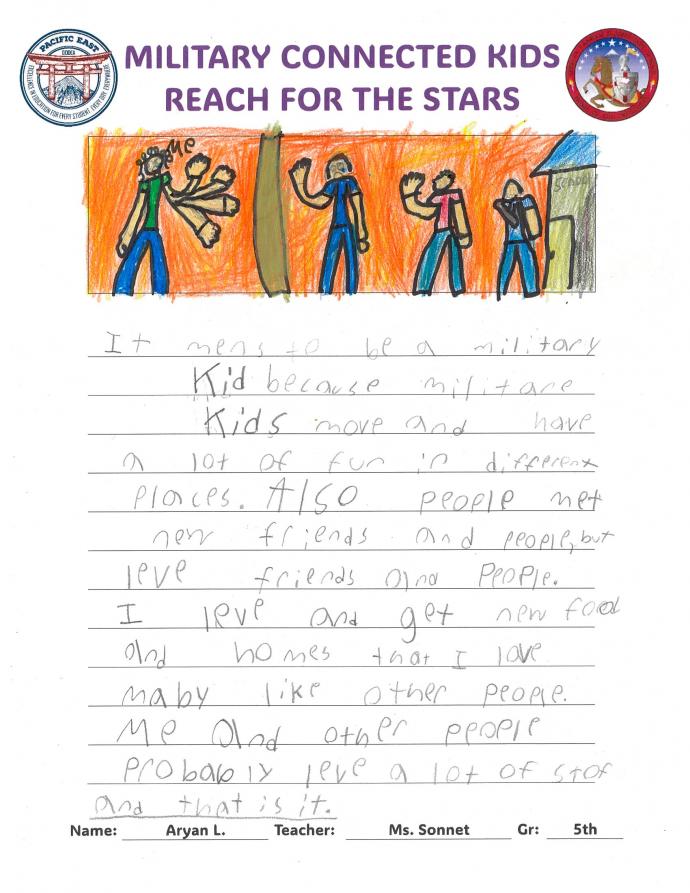 PACIFIC EAST
DODEA
EXCELLENCE IN EDUCATION FOR EVERY STUDENT, EVERY DAY, EVERYWHERE
MILITARY CONNECTED KIDS
REACH FOR THE STARS
Me
SCHOOL
It mens to be a military
Kid because militare
Kids move and have
a lot of fun in different
Places. Also people met
new friends and people, but
leve friends and People.
I leve and get new food
and homes that I love
maby like other people.
Me and other people
Probably leve a lot of stof
and that is it.
Name: Aryan L. Teacher: Ms. Sonnet Gr: 5th